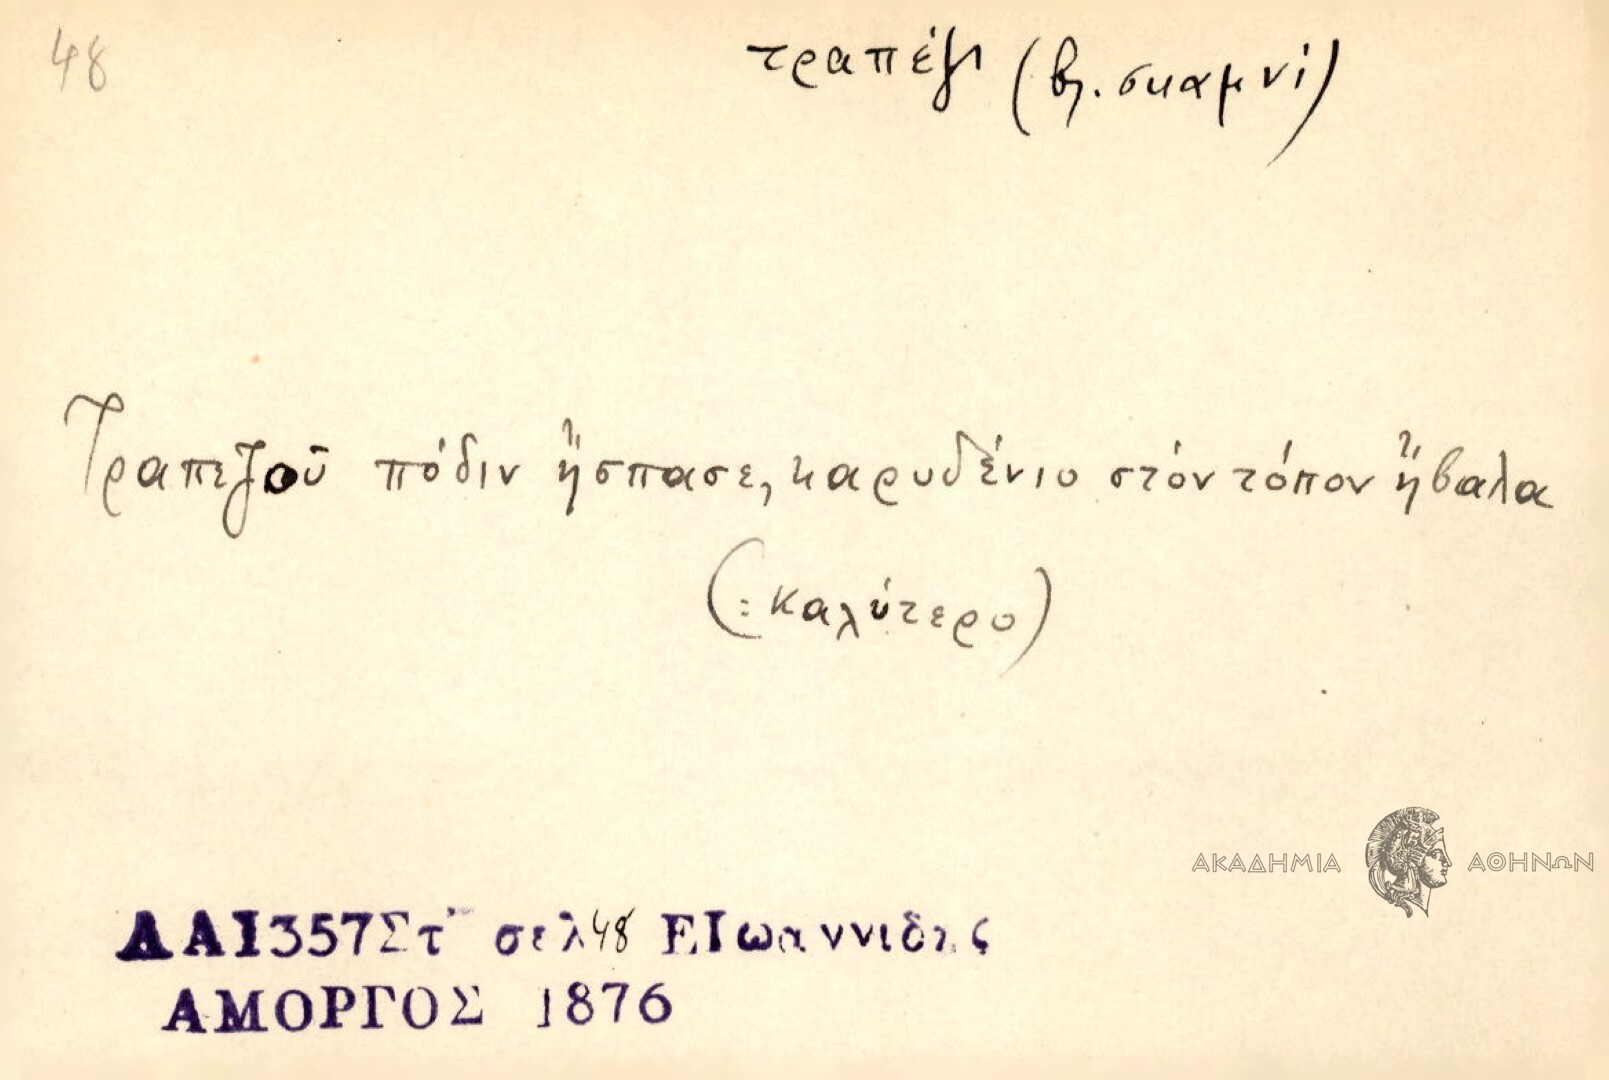 48
τραπέζι (βλ. σκαμνί)
Τραπεζοῦ πόδιν ἤσπασε, καρυδένιο στόν τόπον ἤβαλα
(: καλύτερο)
ΑΚΑΔΗΜΙΑ ΑΘΗΝΩΝ
ΔΑΙ357Στ΄ σελ48 ΕΙωαννιδης
ΑΜΟΡΓΟΣ 1876